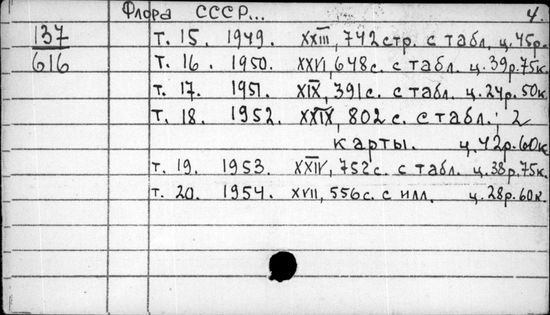 Флора СССР... 4.
137 т. 15. 1949. XXIII, 742 стр. с табл, ц. 45р.
616 т. 16. 1950. XXVI, 648 с. с табл. ц. 39р. 75к.
т. 17. 1951. XIX, 391 с. с табл. ц. 24р. 50к.
т. 18. 1952. XXIX, 802 с. с табл.; 2
карты. ц. 42р. 60к
т. 19. 1953. XXIV, 752 с. с табл. ц. 38р. 75к.
т. 20. 1954. XVII, 556 с. с илл. ц. 28р. 60к.